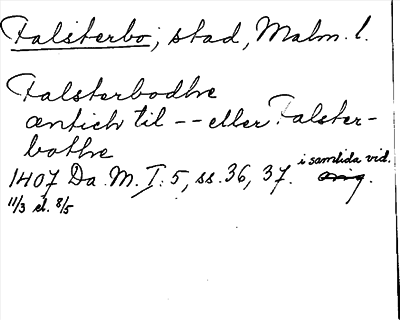 Falsterbo, stad, Malm. l.
Falsterbodhe
æntich til -- eller Falster-
bothe
1407 Da. M. I: 5, ss. 36, 37. i samtida vid.
11/3 el. 8/5